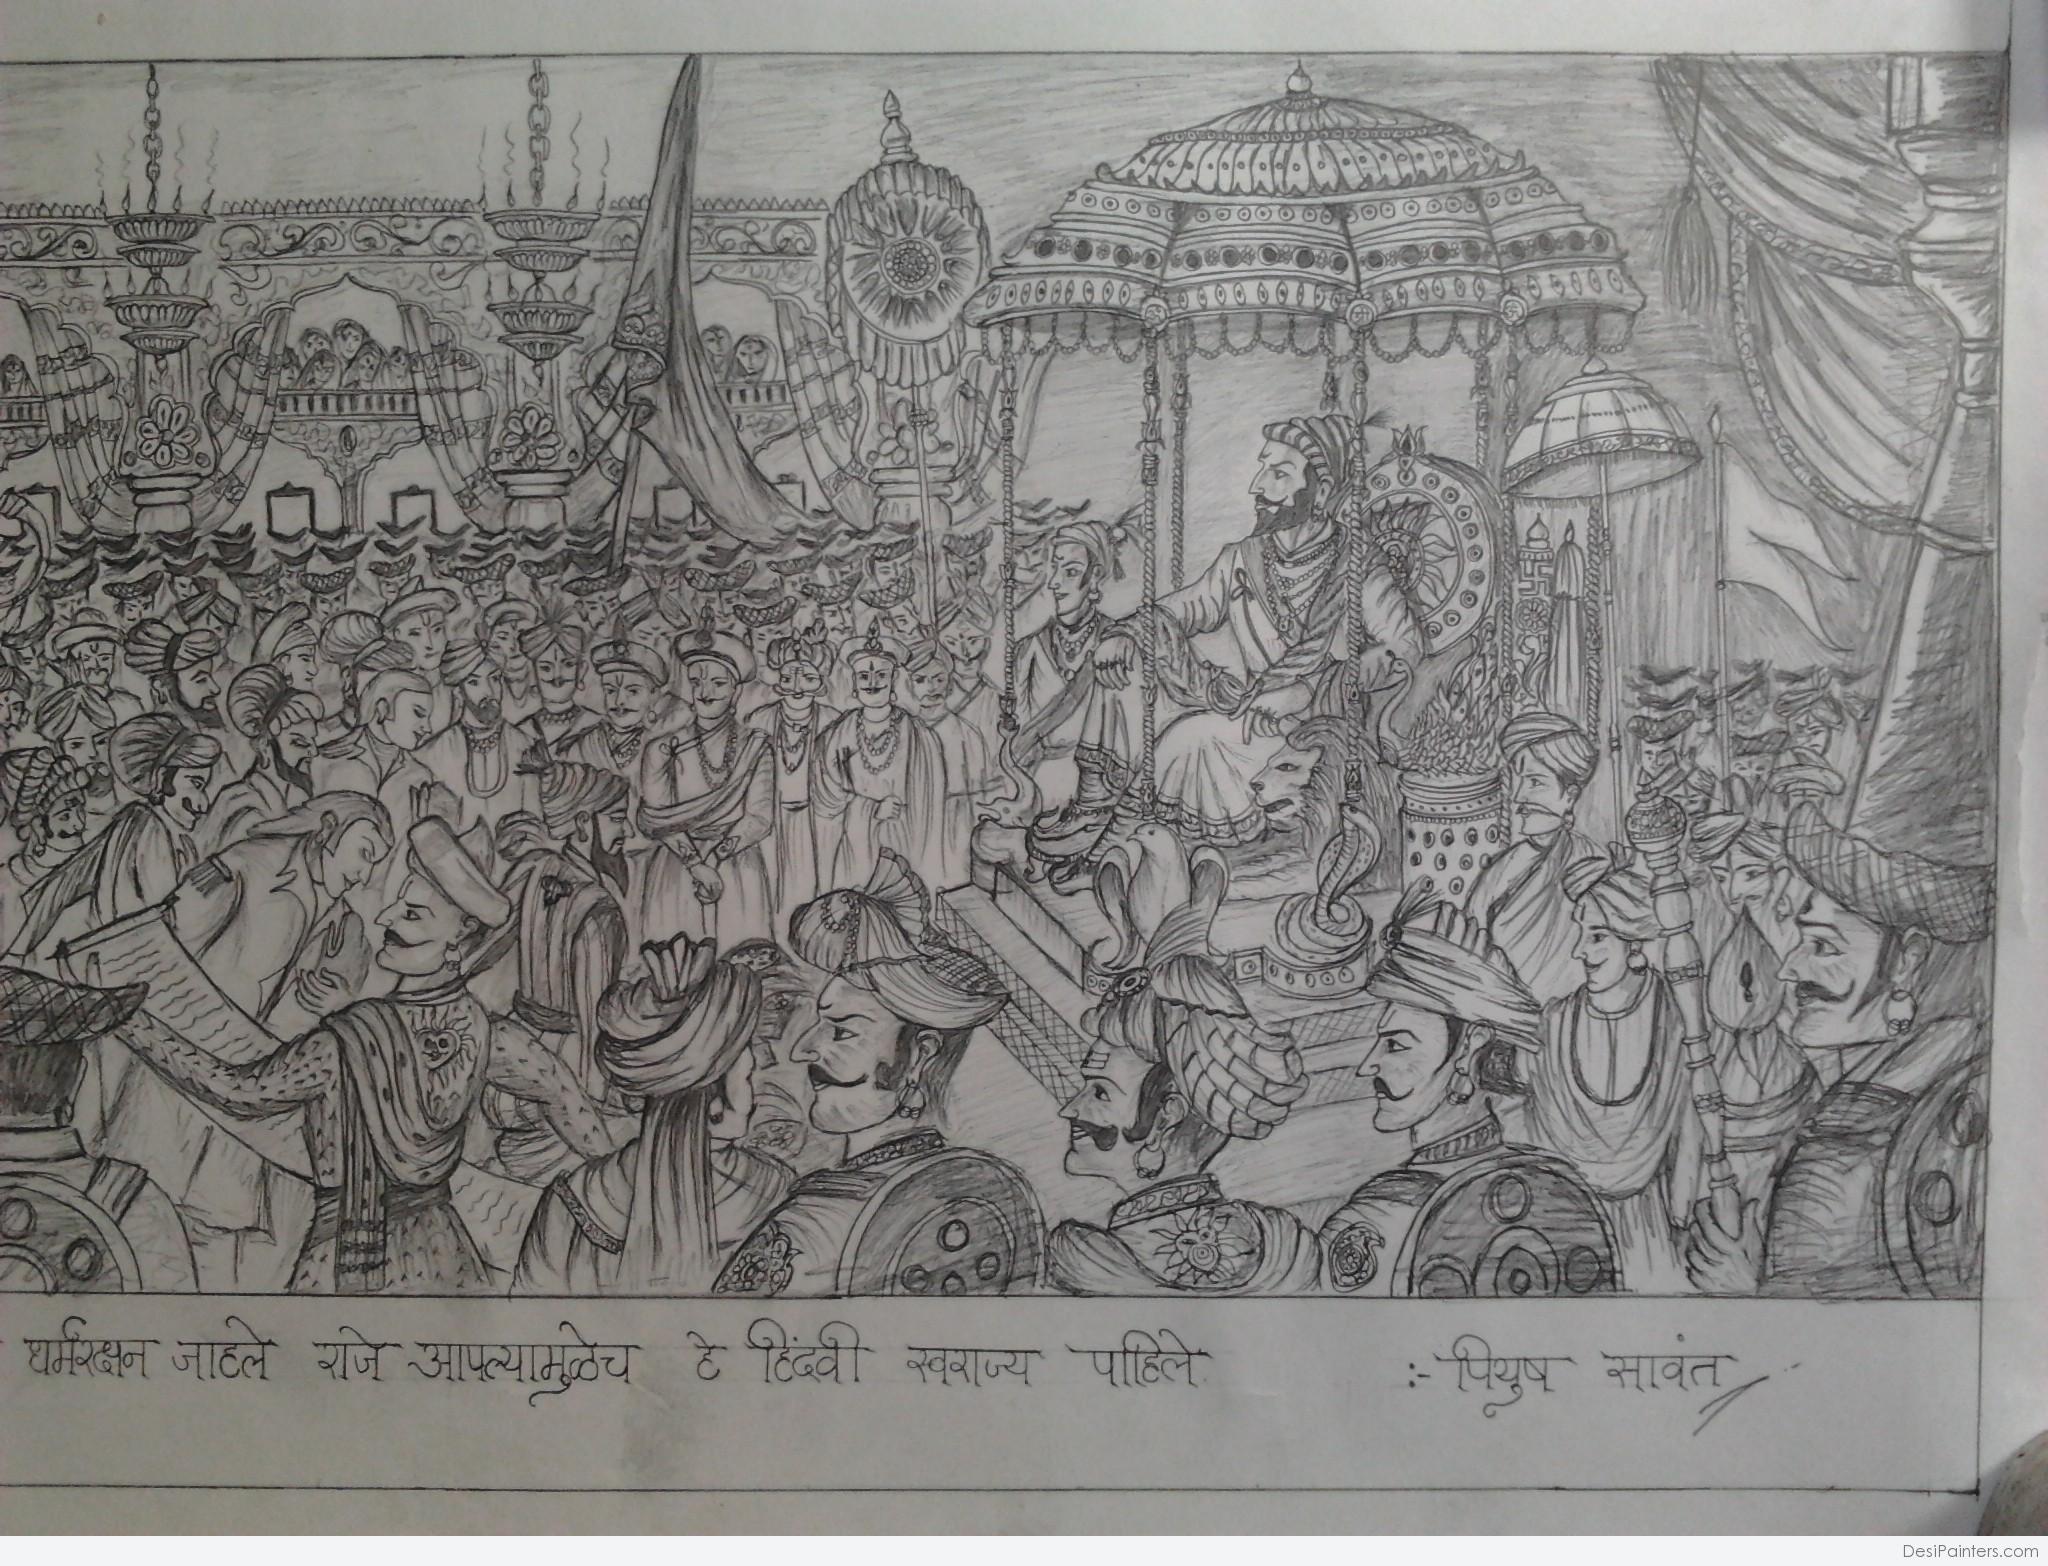 धर्मरक्षन जाहले राजे आपल्यामुळेच हे हिंदवी स्वराज्य पाहिले :- पियुष सावंत
DesiPainters.com